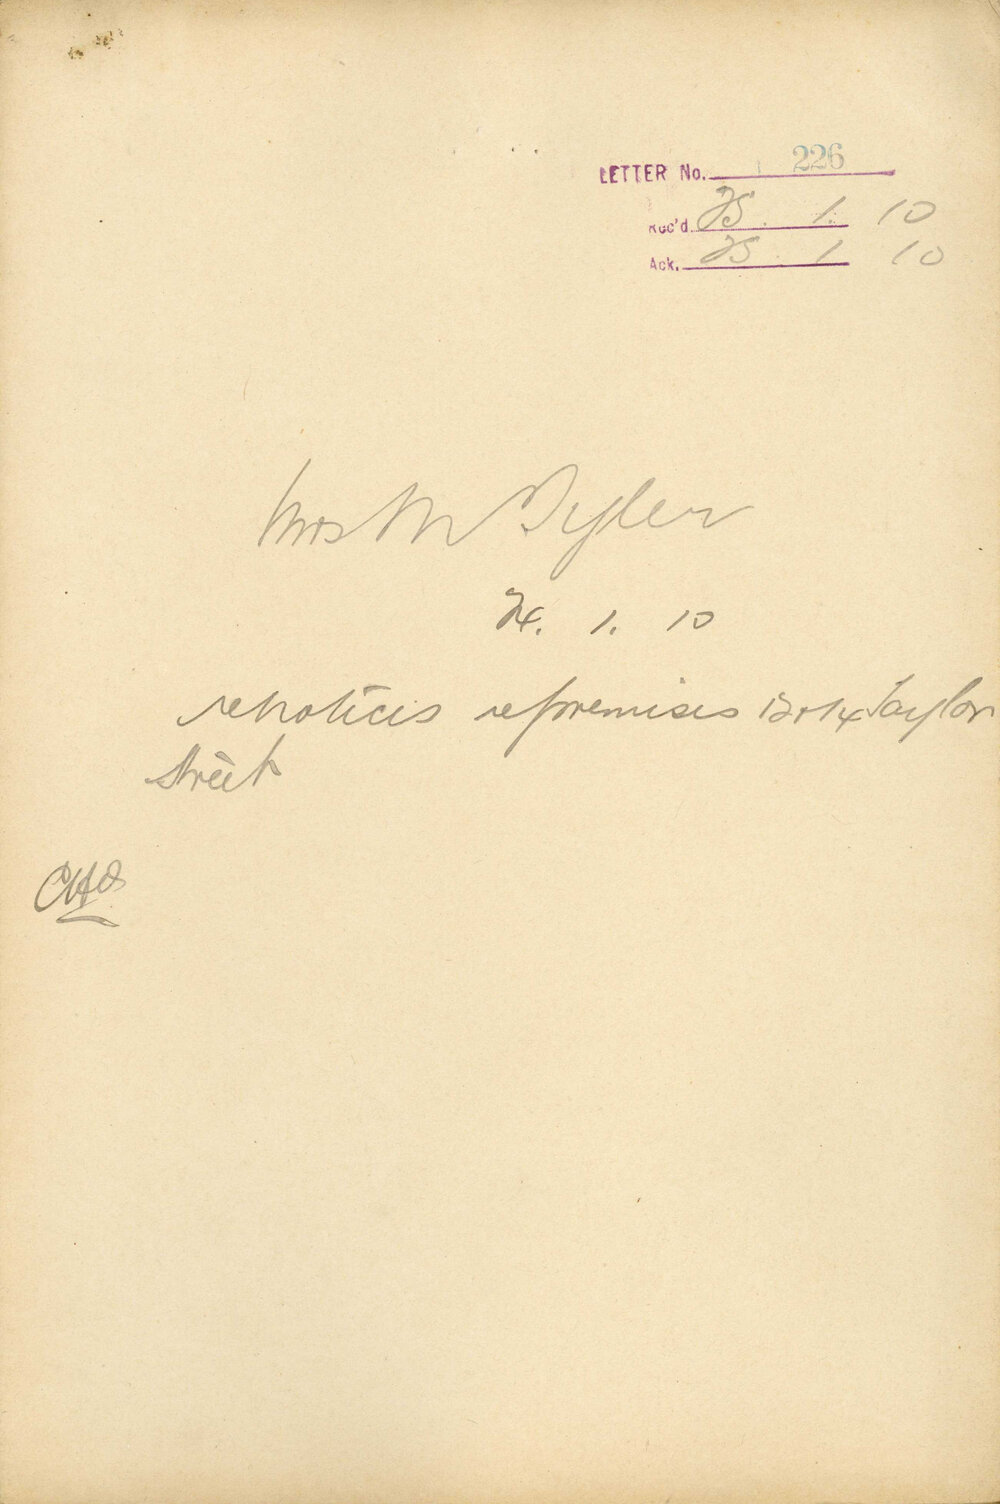 LETTER No. 226
Rec'd. 25. 1. 10
Ack. 25 1 10
Mrs M Tyler
24. 1. 10
re notices re premises 12 & 14 Taylor
Street